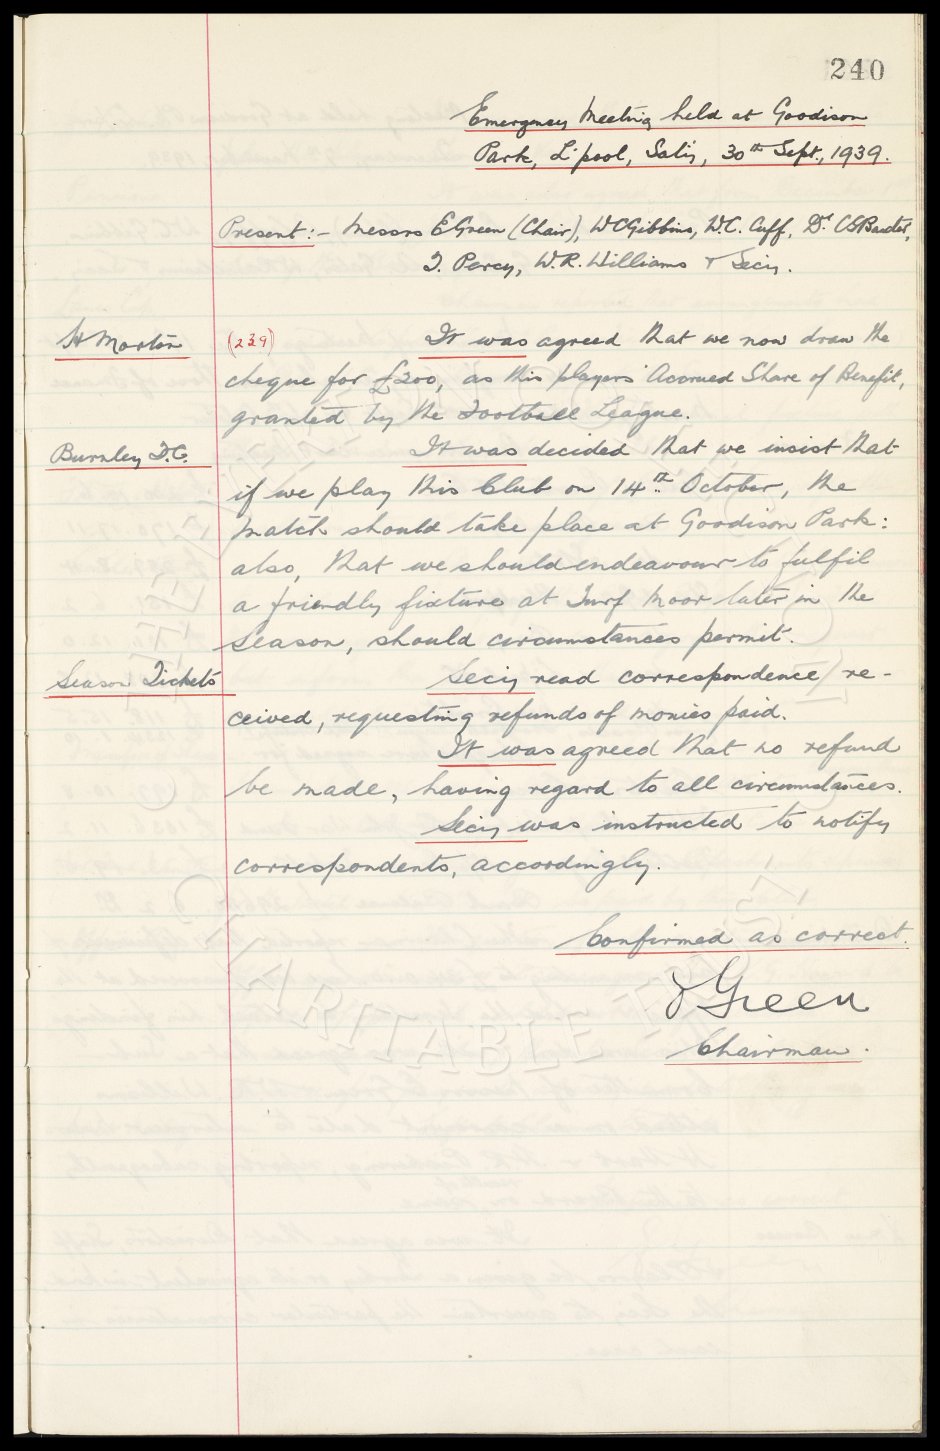 240
Emergency Meeting held at Goodison
Park, L'pool, Sat'y, 30th Sept., 1939.
Present :- Messrs E Green (Chair), W C Gibbins, W.C. Cuff, Dr C S Baxter,
T. Percy, W.R. Williams & Sec'y.
H Morton (239) It was agreed that we now draw the
cheque for £200, as this players' Accrued Share of Benefit,
granted by the Football League.
Burnley F.C. It was decided that we insist that
if we play this Club on 14th October, the
match should take place at Goodison Park:
also, that we should endeavour to fulfil
a friendly fixture at Turf Moor later in the
season, should circumstances permit.
Season Tickets Sec'y read correspondence re-
ceived, requesting refunds of monies paid.
It was agreed that no refund
be made, having regard to all circumstances.
Sec'y was instructed to notify
correspondents, accordingly.
Confirmed as correct.
E Green
Chairman.
CHARITABLE TRUST